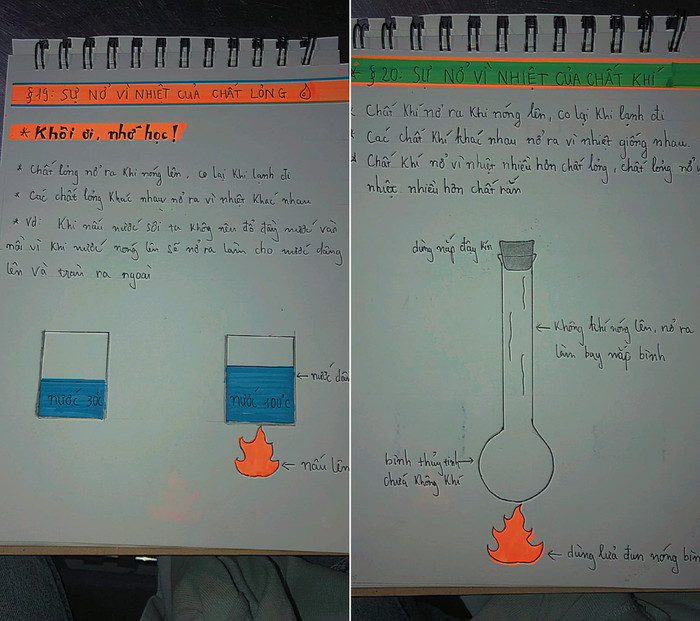 §19. SỰ NỞ VÌ NHIỆT CỦA CHẤT LỎNG
* Khôi ơi, nhớ học!
* Chất lỏng nở ra khi nóng lên, co lại khi lạnh đi
* Các chất lỏng khác nhau nở ra vì nhiệt khác nhau
* Vd: Khi nấu nước sôi ta không nên đổ đầy nước vào
nồi vì khi nước nóng lên sẽ nở ra làm cho nước dâng
lên và tràn ra ngoài
nước 30°C
nước 100°C
nước
nấu lên
§20. SỰ NỞ VÌ NHIỆT CỦA CHẤT KHÍ
Chất khí nở ra khi nóng lên, co lại khi lạnh đi
* Các chất khí khác nhau nở ra vì nhiệt giống nhau.
* Chất khí nở vì nhiệt nhiều hơn chất lỏng, chất lỏng nở
nhiệt nhiều hơn chất rắn
dùng nắp đậy kín
không khí nóng lên, nở ra
làm bay nắp bình
bình thủy tinh
chứa không khí
dùng lửa đun nóng bình